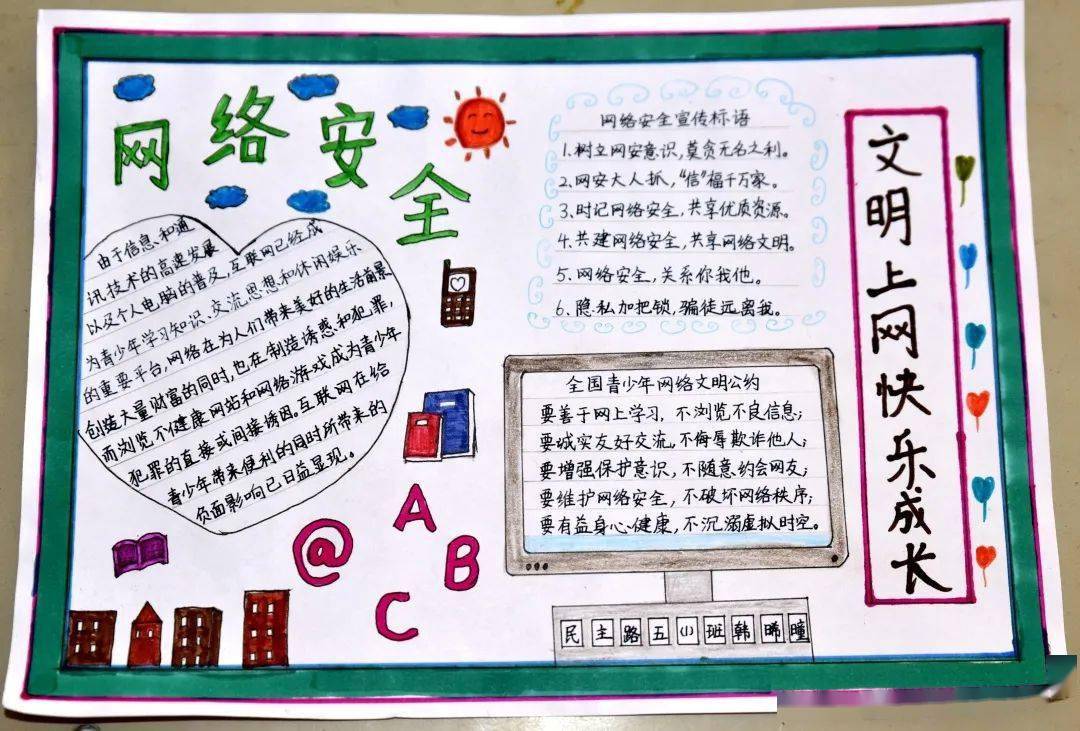 网络安全
由于信息和通
讯技术的高速发展
以及个人电脑的普及,互联网已经成
为青少年学习知识、交流思想和休闲娱乐
的重要平台,网络在为人们带来美好的生活前景
创造大量财富的同时,也在制造诱惑和犯罪,
而浏览不健康网站和网络游戏成为青少年
犯罪的直接或间接诱因。互联网在给
青少年带来便利的同时所带来的
负面影响已日益显现。
@
A
B
C
网络安全宣传标语
1.树立网安意识,莫贪无名之利。
2、网安大人抓,“信”福千万家。
3、时记网络安全,共享优质资源。
4.共建网络安全,共享网络文明。
5、网络安全,关系你我他。
6、隐私加把锁,骗徒远离我。
全国青少年网络文明公约
要善于网上学习,不浏览不良信息;
要诚实友好交流,不侮辱欺诈他人;
要增强保护意识,不随意约会网友;
要维护网络安全,不破坏网络秩序;
要有益身心健康,不沉溺虚拟时空。
民主路五(1)班韩晞曈
文明上网快乐成长